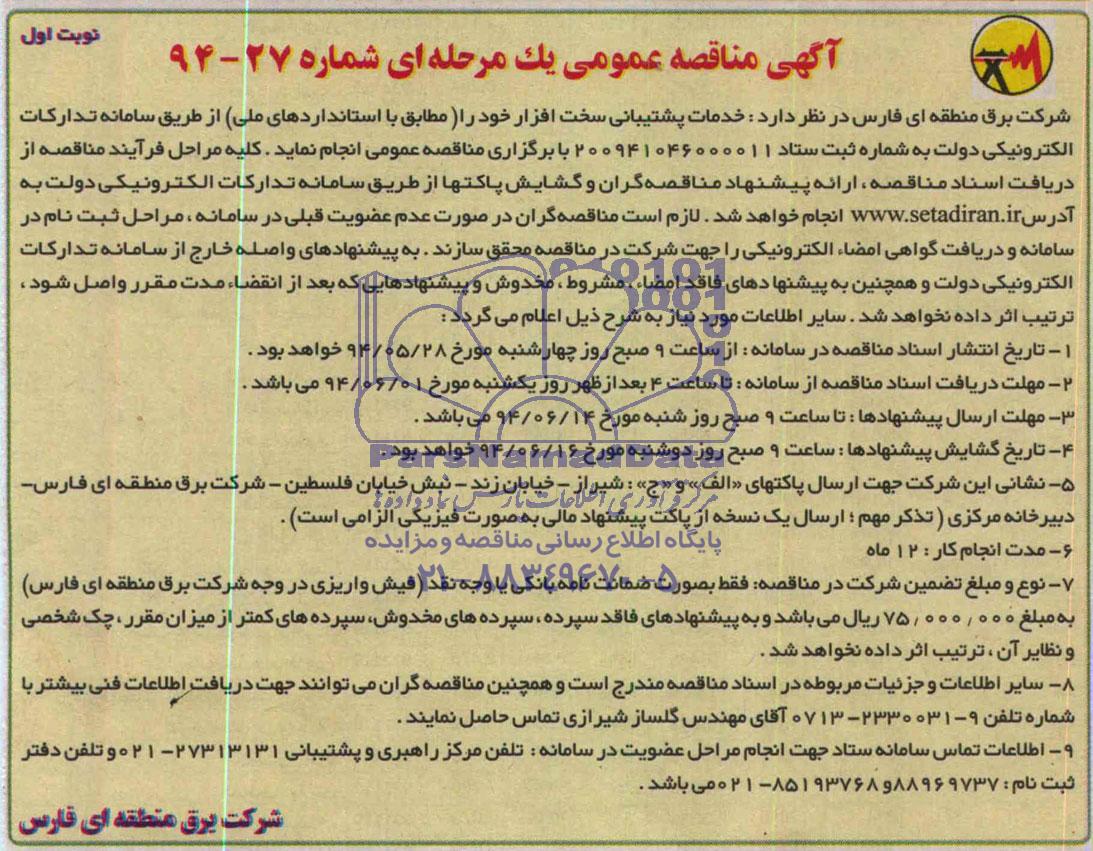 نوبت اول
آگهی مناقصه عمومی یك مرحله ای شماره ۲۷-۹۴
شرکت برق منطقه ای فارس در نظر دارد : خدمات پشتیبانی سخت افزار خود را( مطابق با استانداردهای ملی) از طریق سامانه تدارکات
الکترونیکی دولت به شماره ثبت ستاد ۲۰۰۹۴۱۰۴۶۰۰۰۰۱۱ با برگزاری مناقصه عمومی انجام نماید . کلیه مراحل فرآیند مناقصه از
دریافت اسناد مناقصه ، ارائه پیشنهاد مناقصه‌گران و گشایش پاکتها از طریق سامانه تدارکات الکترونیکی دولت به
آدرسwww.setadiran.ir انجام خواهد شد . لازم است مناقصه‌گران در صورت عدم عضویت قبلی در سامانه ، مراحل ثبت نام در
سامانه و دریافت گواهی امضاء الکترونیکی را جهت شرکت در مناقصه محقق سازند . به پیشنهادهای واصله خارج از سامانه تدارکات
الکترونیکی دولت و همچنین به پیشنها دهای فاقد امضاء ، مشروط ، مخدوش و پیشنهادهایی که بعد از انقضاء مدت مقرر واصل شود ،
ترتیب اثر داده نخواهد شد . سایر اطلاعات مورد نیاز به شرح ذیل اعلام می گردد :
۱- تاریخ انتشار اسناد مناقصه در سامانه : از ساعت ۹ صبح روز چهارشنبه مورخ ۹۴/۰۵/۲۸ خواهد بود .
۲- مهلت دریافت اسناد مناقصه از سامانه : تا ساعت ۴ بعدازظهر روز یکشنبه مورخ ۹۴/۰۶/۰۱ می باشد .
۳- مهلت ارسال پیشنهادها : تا ساعت ۹ صبح روز شنبه مورخ ۹۴/۰۶/۱۴ می باشد .
۴- تاریخ گشایش پیشنهادها : ساعت ۹ صبح روز دوشنبه مورخ ۹۴/۰۶/۱۶ خواهد بود.
ParsNamadData
۵- نشانی این شرکت جهت ارسال پاکتهای «الف» و «ج» : شیراز - خیابان زند - نبش خیابان فلسطین - شرکت برق منطقه ای فارس-
دبیرخانه مرکزی ( تذکر مهم ؛ ارسال یک نسخه از پاکت پیشنهاد مالی به صورت فیزیکی الزامی است) .
پایگاه اطلاع رسانی مناقصه و مزایده
۶- مدت انجام کار : ۱۲ ماه
۰۲۱-۸۸۳۴۹۶۷۰-۵
۷- نوع و مبلغ تضمین شرکت در مناقصه: فقط بصورت ضمانت نامه بانکی یا وجه نقد (فیش واریزی در وجه شرکت برق منطقه ای فارس)
به مبلغ ۷۵,۰۰۰,۰۰۰ ریال می باشد و به پیشنهادهای فاقد سپرده ، سپرده های مخدوش، سپرده های کمتر از میزان مقرر ، چک شخصی
و نظایر آن ، ترتیب اثر داده نخواهد شد .
۸- سایر اطلاعات و جزئیات مربوطه در اسناد مناقصه مندرج است و همچنین مناقصه گران می توانند جهت دریافت اطلاعات فنی بیشتر با
شماره تلفن ۹-۲۳۳۰۰۳۱-۰۷۱۳ آقای مهندس گلساز شیرازی تماس حاصل نمایند .
۹- اطلاعات تماس سامانه ستاد جهت انجام مراحل عضویت در سامانه : تلفن مرکز راهبری و پشتیبانی ۲۷۳۱۳۱۳۱-۰۲۱ و تلفن دفتر
ثبت نام : ۸۸۹۶۹۷۳۷ و ۸۵۱۹۳۷۶۸-۰۲۱ می باشد .
شرکت برق منطقه ای فارس